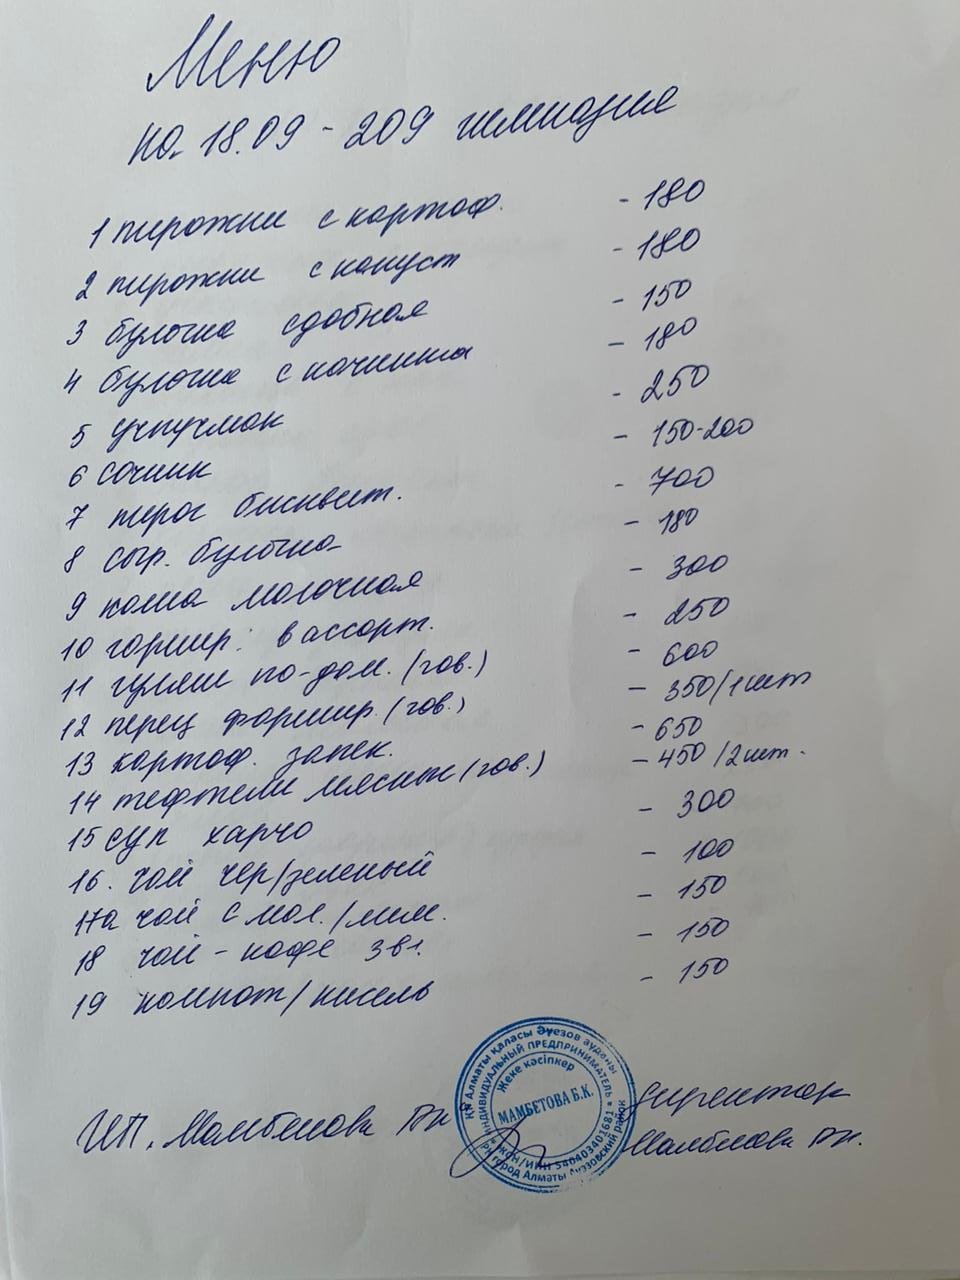 Меню
на 18.09 - 209 гимназия
1 пирожки с картоф. - 180
2 пирожки с капуст - 180
3 булочка сдобная - 150
4 булочка с начинка - 180
5 учпучмак - 250
6 сочник - 150-200
7 пирог бисквит. - 700
8 сыр. булочка - 180
9 каша молочная - 300
10 гарнир: в ассорт. - 250
11 гуляш по-дом. (гов.) - 600
12 перец фаршир. (гов.) - 350/1шт
13 картоф. запек. - 650
14 тефтели мясные (гов.) - 450/2шт.
15 суп харчо - 300
16. чай чер/зеленый - 100
17а чай с мол./лим. - 150
18 чай-кофе 3в1. - 150
19 компот/кисель - 150
ИП. Мамбетова
Директор
Мамбетова
ҚР Алматы қаласы Әуезов ауданы
ИНДИВИДУАЛЬНЫЙ ПРЕДПРИНИМАТЕЛЬ
Жеке кәсіпкер
МАМБЕТОВА Б.К.
ЖСН/ИИН 540403401681
РК город Алматы Ауэзовский район